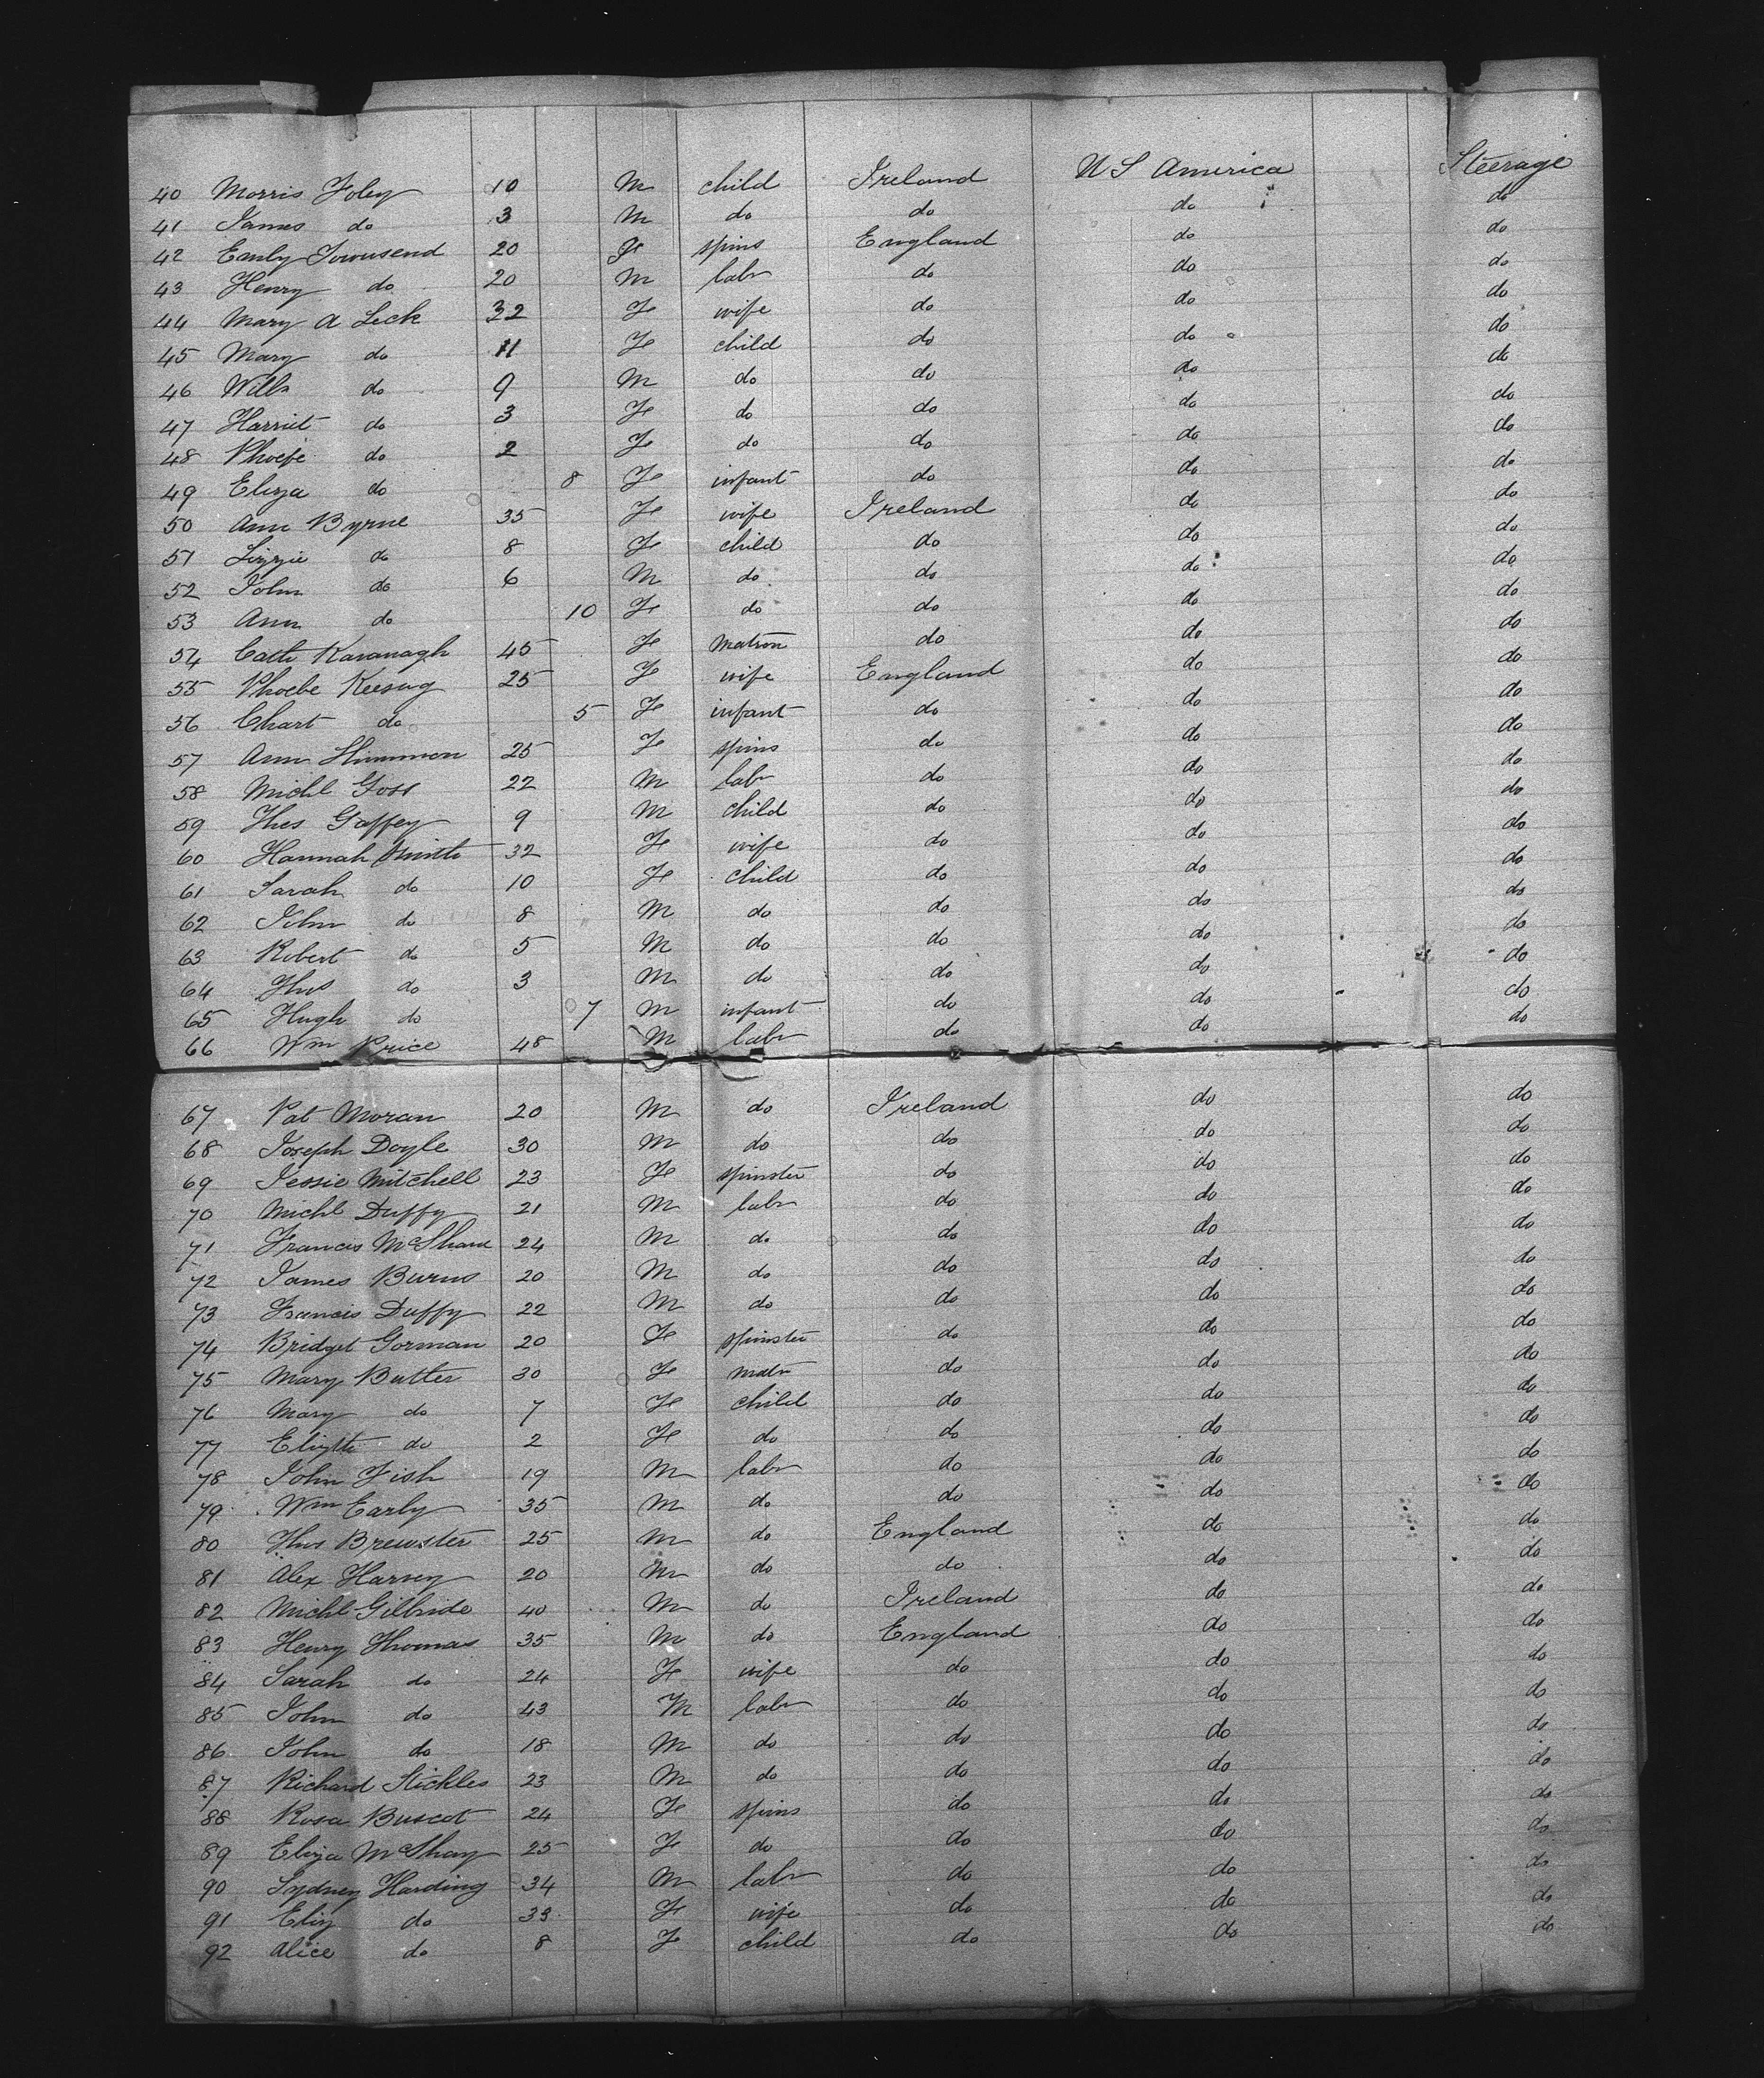 40 Morris Foley 10 M child Ireland U S America Steerage
41 James do 3 M do do do do
42 Emly Townsend 20 Fe spins England do do
43 Henry do 20 M labr do do do
44 Mary A Leck 32 Fe wife do do do
45 Mary do 11 Fe child do do do
46 Willm do 9 M do do do do
47 Harriet do 3 Fe do do do do
48 Phoebe do 2 Fe do do do do
49 Eliza do 8 Fe infant do do do
50 Ann Byrne 35 Fe wife Ireland do do
51 Lizzie do 8 Fe child do do do
52 John do 6 M do do do do
53 Ann do 10 Fe do do do do
54 Cath Kavanagh 45 Fe matron do do do
55 Phoebe Keesing 25 Fe wife England do do
56 Chart do 5 Fe infant do do do
57 Ann Shimmon 25 Fe spins do do do
58 Michl Goss 22 M labr do do do
59 Thos Gaffey 9 M child do do do
60 Hannah Smith 32 Fe wife do do do
61 Sarah do 10 Fe child do do do
62 John do 8 M do do do do
63 Robert do 5 M do do do do
64 Thos do 3 M do do do do
65 Hugh do 7 M infant do do do
66 Wm Price 48 M labr do do do
67 Pat Moran 20 M do Ireland do do
68 Joseph Doyle 30 M do do do do
69 Jessie Mitchell 23 Fe spinster do do do
70 Michl Duffy 21 M labr do do do
71 Francis McShane 24 M do do do do
72 James Burns 20 M do do do do
73 Francis Duffy 22 M do do do do
74 Bridget Gorman 20 Fe spinster do do do
75 Mary Butler 30 Fe matr do do do
76 Mary do 7 Fe child do do do
77 Elizth do 2 Fe do do do do
78 John Fish 19 M labr do do do
79 Wm Early 35 M do do do do
80 Thos Brewster 25 M do England do do
81 Alex Harvey 20 M do do do do
82 Michl Gilbride 40 M do Ireland do do
83 Henry Thomas 35 M do England do do
84 Sarah do 24 Fe wife do do do
85 John do 43 M labr do do do
86 John do 18 M do do do do
87 Richard Stickles 23 M do do do do
88 Rosa Buscot 24 Fe spins do do do
89 Eliza McShay 25 Fe do do do do
90 Sydney Harding 34 M labr do do do
91 Eliz do 33 Fe wife do do do
92 Alice do 8 Fe child do do do